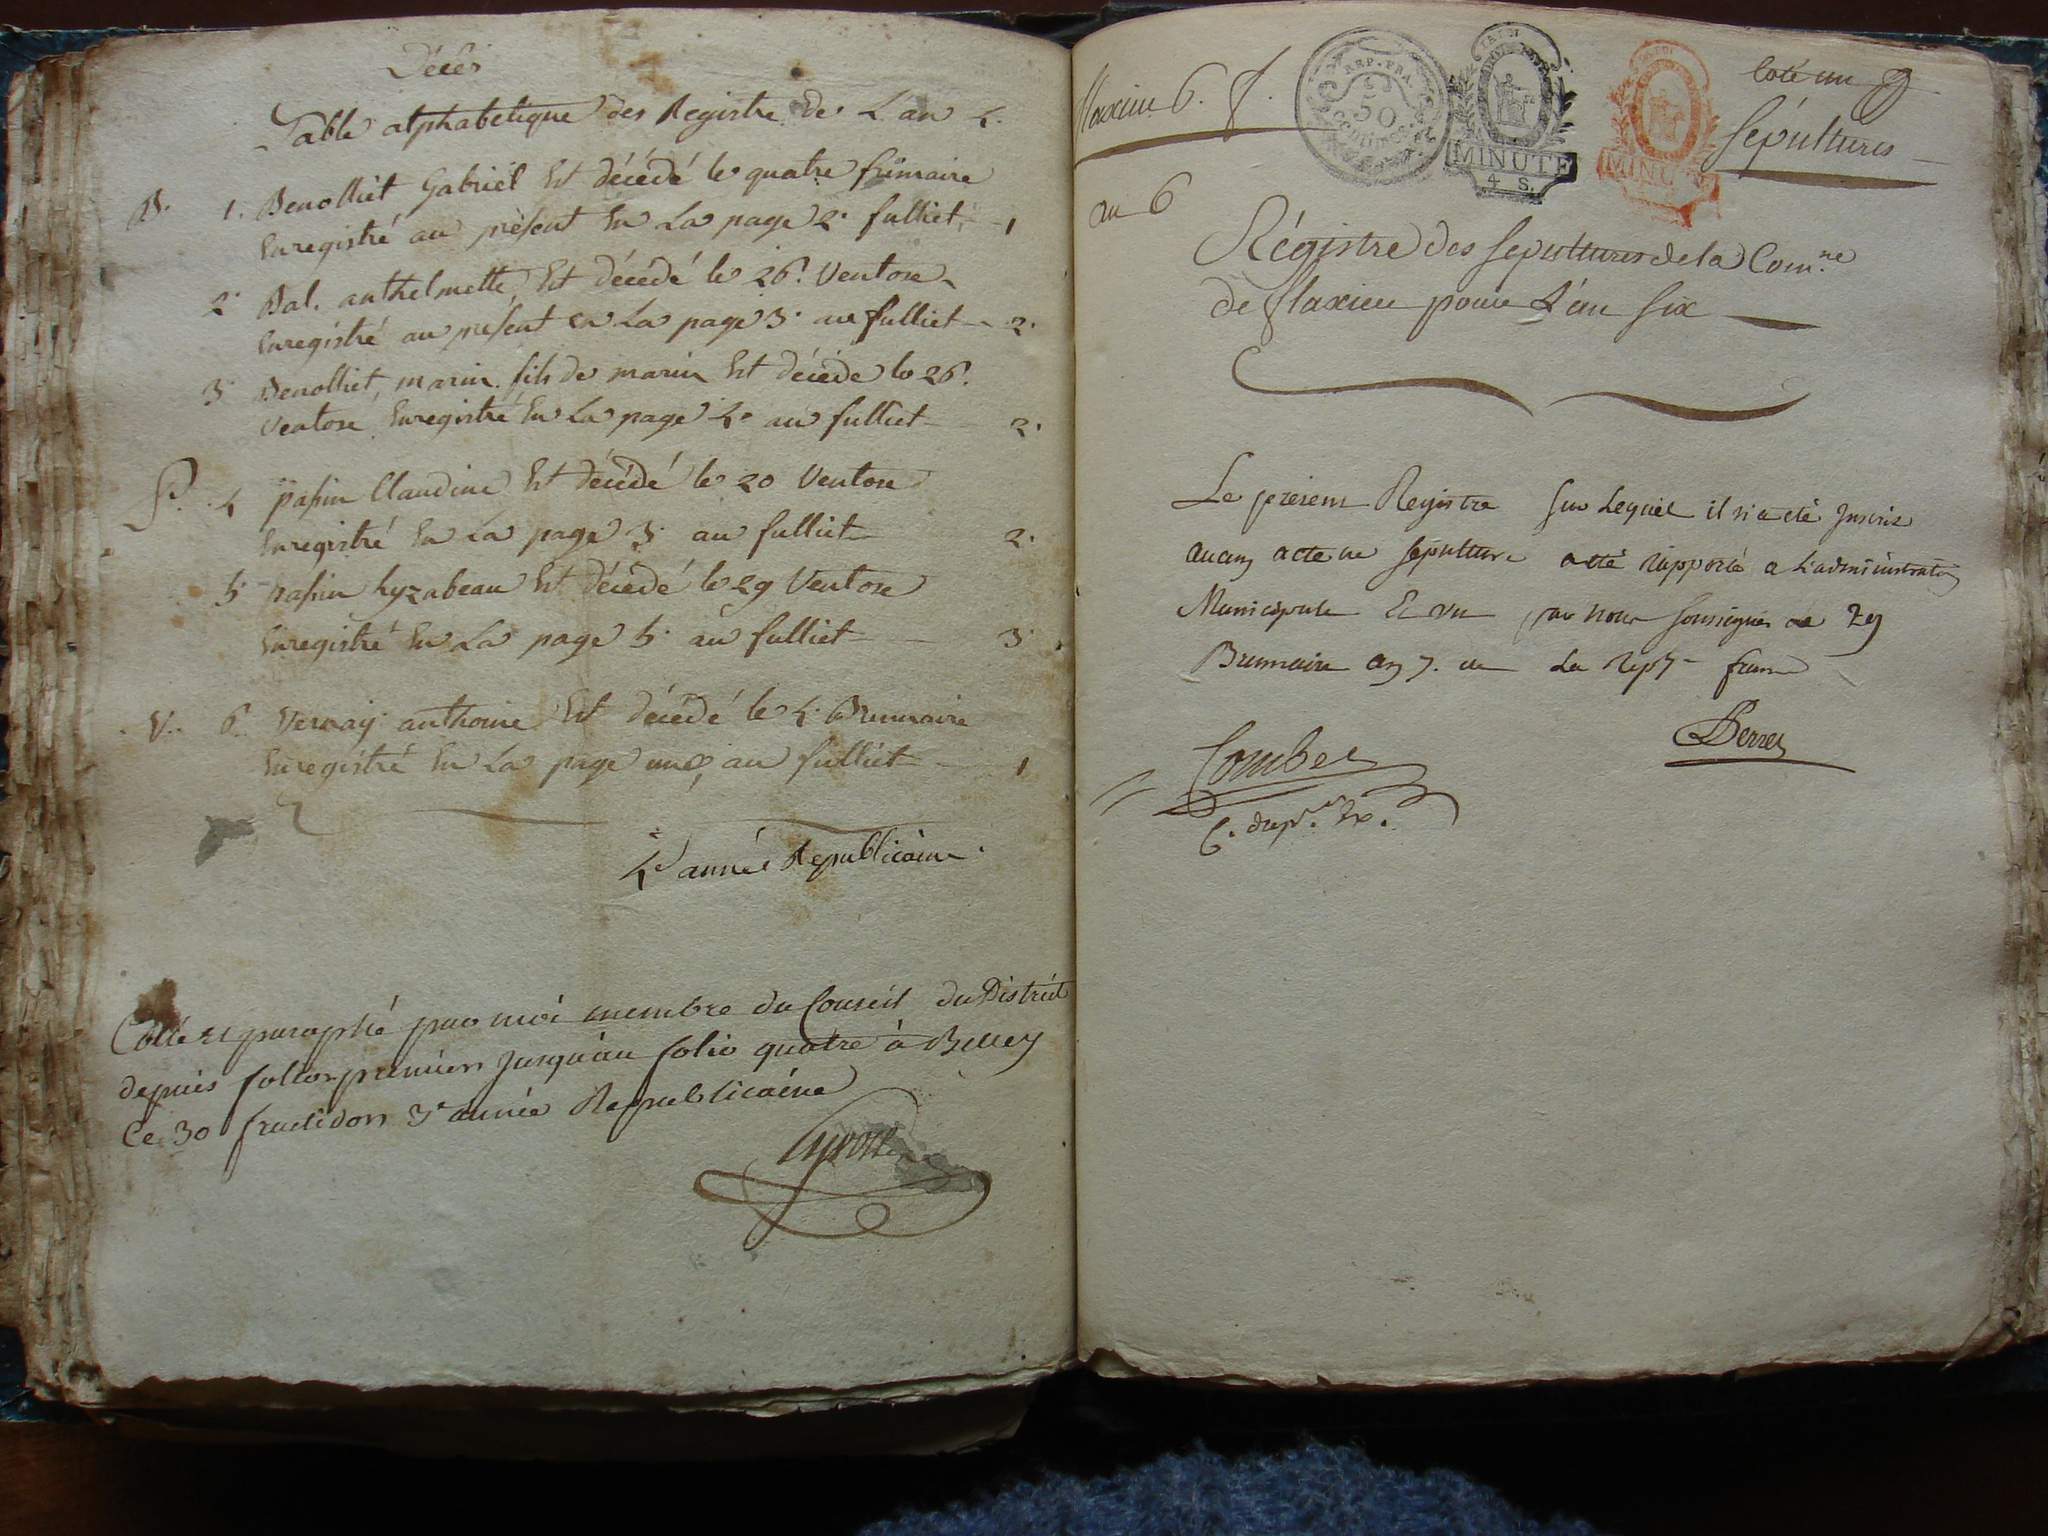 Décès
Table alphabetique des Registre de L an 4.
B. 1. Benolliet Gabriel Est décédé le quatre frimaire
Enregistré au présent En La page 2. fulliet. 1
2. Bal. anthelmette Est décédé le 26. Ventose
Enregistré au présent en La page 3. au fulliet 2.
3. Benolliet, marin. fils de marin Est décédé le 26.
Ventose Enregistré En La page 4. au fulliet 2.
P. 4 papin Claudine Est décédé le 20 Ventose
Enregistré En La page 3. au fulliet 2.
5. papin Lyzabeau Est décédé le 29 Ventose
Enregistré En La page 5. au fulliet 3.
V. 6. Vernay anthoine Est décédé le 4. Brumaire
Enregistré En La page une, au fulliet 1
4e année Republicaine.
Cotté et paraphé par moi membre du Conseil du District
depuis folio premier jusqu'au folio quatre à Belley
Ce 30 fructidor 3e année Republicaine
flaxieu 6.
REP. FRA.
50
centimes
MINUTE
4 S.
MINUTE
Coté un
Sépultures
an 6
Régistre des Sepultures de la Com.ne
de flaxieu pour L'an Six
Le present Registre Sur Lequel il n'a eté Inscrit
aucun acte de Sepulture a eté rapporté a L'administration
Municipale Et vu par nous Soussignés le 29
Brumaire an 7. de La Rep. franc
Combet